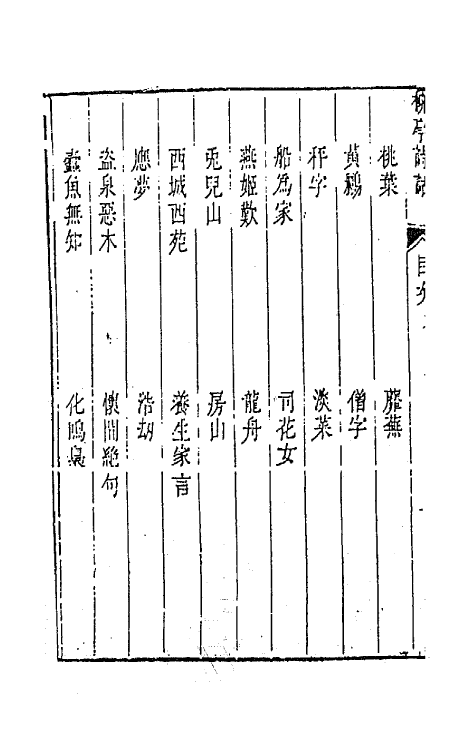 柳亭詩話 目次
桃葉 蘼蕪
黃鸝 僧字
秤字 淡菜
船爲家 司花女
燕姬歎 龍舟
兎兒山 房山
西城西苑 養生家言
應夢 浩劫
盜泉惡木 懷閒絶句
蠹魚無知 化鳴梟